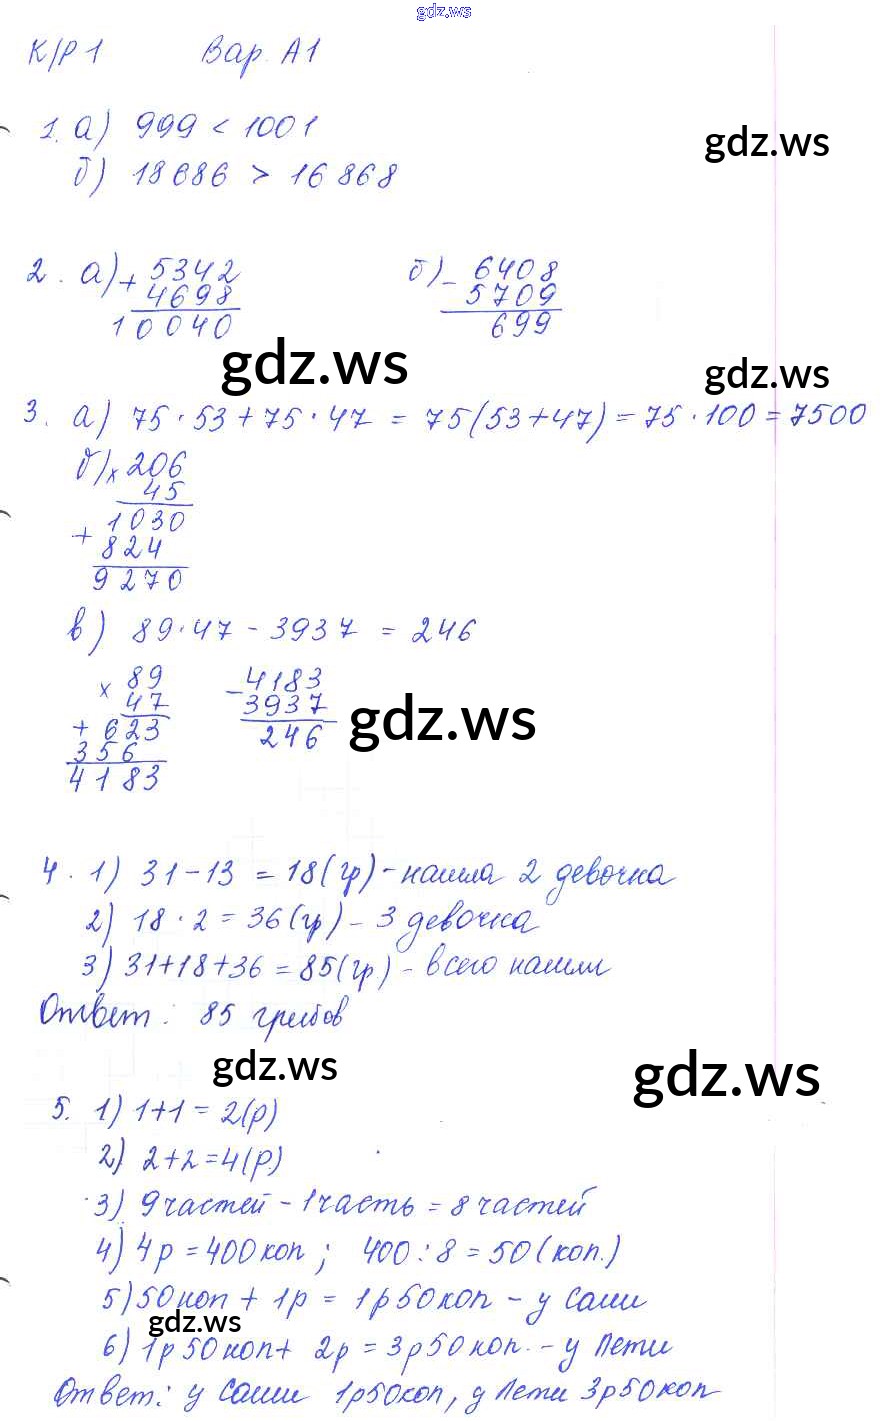 gdz.ws
К/Р 1 Вар. А1
1. а) 999 < 1001
gdz.ws
б) 18686 > 16868
2. а) + 5342 б) - 6408
4698 5709
10040 699
gdz.ws
gdz.ws
3. а) 75 · 53 + 75 · 47 = 75(53+47) = 75 · 100 = 7500
б) x 206
45
1030
+
824
9270
в) 89·47 - 3937 = 246
x 89 - 4183
47 3937
+ 623 246
gdz.ws
356
4183
4. 1) 31 - 13 = 18(гр) - нашла 2 девочка
2) 18 · 2 = 36(гр) - 3 девочка
3) 31+18+36 = 85(гр) - всего нашли
Ответ: 85 грибов
gdz.ws
gdz.ws
5. 1) 1+1 = 2(р)
2) 2+2=4(р)
3) 9 частей - 1 часть = 8 частей
4) 4р = 400 коп ; 400 : 8 = 50 (коп.)
5) 50 коп + 1р = 1р 50 коп - у Саши
gdz.ws
6) 1р 50 коп + 2р = 3р 50 коп. - у Пети
Ответ: у Саши 1р50коп, у Пети 3р50коп